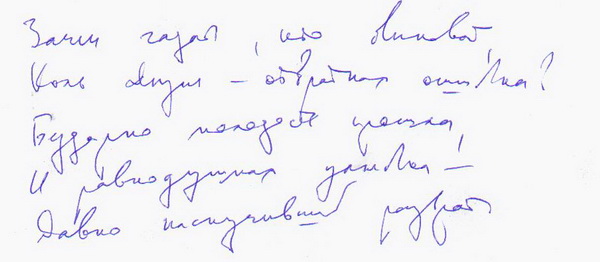 Зачем гадать, кто виноват,
Коль жизнь – отвратная ошибка?
Бездарно молодость прошла,
И равнодушная улыбка –
Давно наскучивший разврат